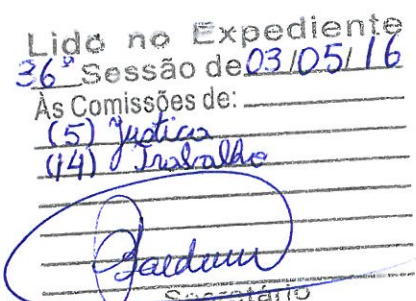 Lido no Expediente
36ª Sessão de 03/05/16
Às Comissões de:
(5) Justiça
(14) Trabalho
Secretário